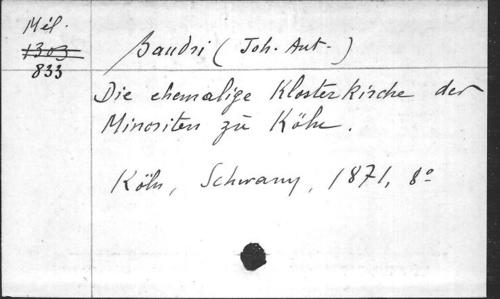 Mél.
1303
833
Baudri (Joh. Ant.)
Die ehemalige Klosterkirche der
Minoriten zu Köln.
Köln, Schwann, 1871, 8º